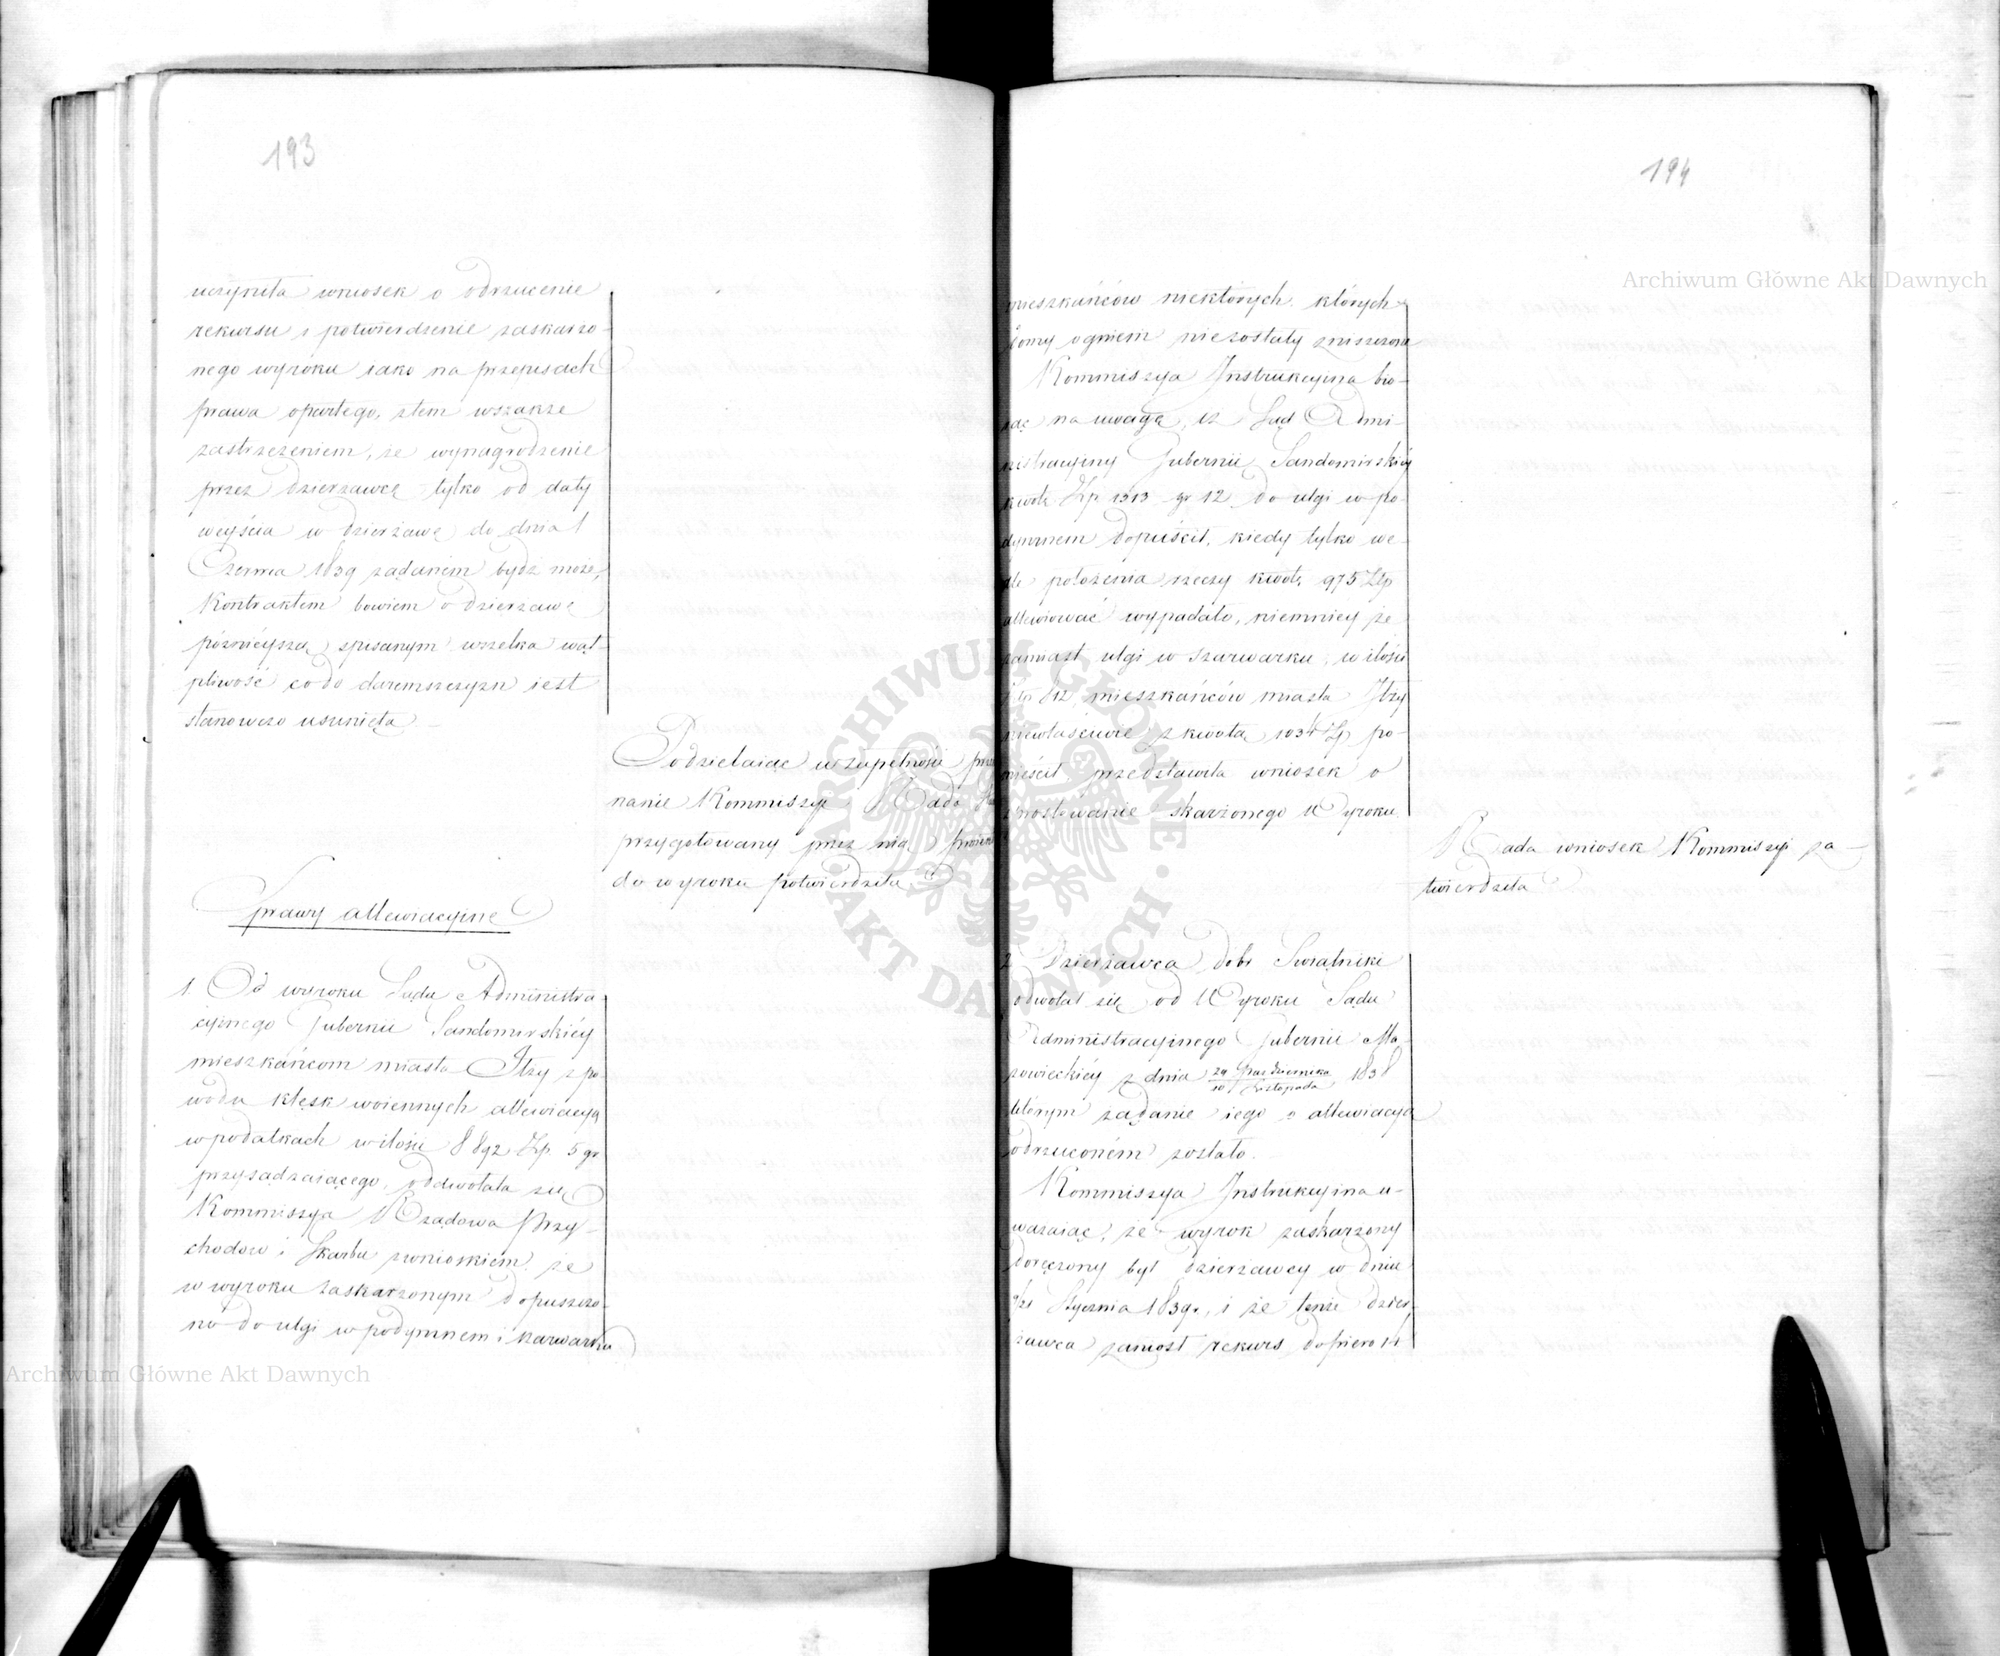 193
uczyniła wniosek o odrzucenie
rekursu i potwierdzenie zaskarżo-
nego wyroku iako na przepisach
prawa opartego, z tem wszakże
zastrzeżeniem, że wynagrodzenie
przez dzierżawcę tylko od daty
weyścia w dzierżawę do dnia 1
Czerwca 1839 żądaniem bydź może,
Kontraktem bowiem o dzierżawę
późnieyszą spisanym wszelka wąt-
pliwość co do daremszczyzn iest
stanowczo usunięta
Podzielaiąc w zupełności
nanie Kommissyi Rada
przygotowany przez nią
do wyroku potwierdziła
Sprawy allewiacyine
1. Od wyroku Sądu Administra-
cyinego Gubernii Sandomirskiéy
mieszkańcom miasta Iłży z po-
wodu klęsk woiennych allewiacyą
w podatkach w ilości 8892 Złp. 5 gr
przysądzaiącego, oddwołała się
Kommissya Rządowa Przy-
chodów i Skarbu z wnioskiem, że
w wyroku zaskarżonym dopuszczo-
no do ulgi w podymnem i szarwarku
194
mieszkańców niektórych, których
domy ogniem nie zostały zniszczone
Kommissya Instrukcyina bio-
rąc na uwagę, iż Sąd Admi-
nistracyiny Gubernii Sandomirskiéy
kwotę Złp 1313 gr 12 do ulgi w po-
dymnem dopuścił, kiedy tylko we-
dle położenia rzeczy kwotę 975 Złp
allewiować wypadało, niemniey że
zamiast ulgi w szarwarku, w ilości
Złp 812 mieszkańców miasta Iłży
niewłaściwie z kwotą 1034 Złp po-
mieścił przedstawiła wniosek o
sprostowanie skarżonego Wyroku.
Rada wniosek Kommissyi za-
twierdziła
2 Dzierżawca dóbr Swiątniki
odwołał się od Wyroku Sądu
Administracyinego Gubernii Ma-
zowieckiéy z dnia 29 Października / 10 Listopada 1838
którym żądanie iego o allewiacyą
odrzuconém zostało.
Kommissya Instrukcyina u-
ważaiąc, że wyrok zaskarżony
doręczony był dzierżawcy w dniu
9/21 Stycznia 1839 r., i że tenże dzier-
żawca zaniósł rekurs dopiero
Archiwum Główne Akt Dawnych
Archiwum Główne Akt Dawnych
ARCHIWUM GŁÓWNE AKT DAWNYCH